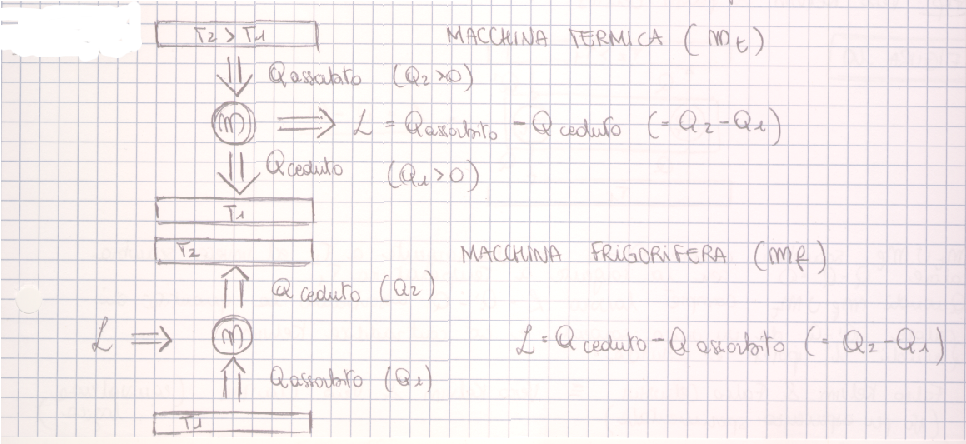 T2 > T1 MACCHINA TERMICA (Mt)
Q assorbito (Q2>0)
M ⇒ L = Q assorbito - Q ceduto (= Q2 - Q1)
Q ceduto (Q1>0)
T1
T2
MACCHINA FRIGORIFERA (Mf)
Q ceduto (Q2)
L ⇒ M L = Q ceduto - Q assorbito (= Q2 - Q1)
Q assorbito (Q1)
T1